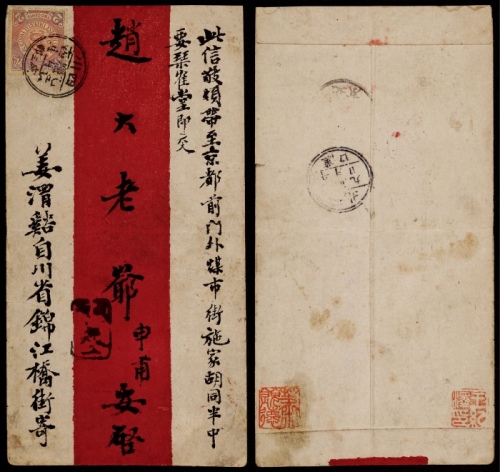 此信敬煩帶至京都前門外煤市街施家胡同半中
堂即交
趙大老爺申甫安啓
姜渭谿自川省錦江橋街寄